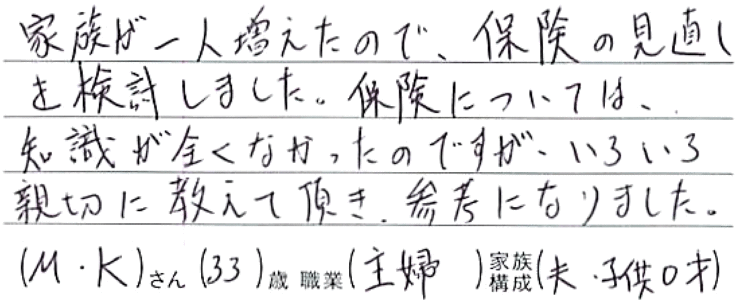 家族が一人増えたので、保険の見直し
を検討しました。保険については、
知識が全くなかったのですが、いろいろ
親切に教えて頂き、参考になりました。
(M・K)さん(33)歳 職業(主婦 )家族構成(夫・子供0才)